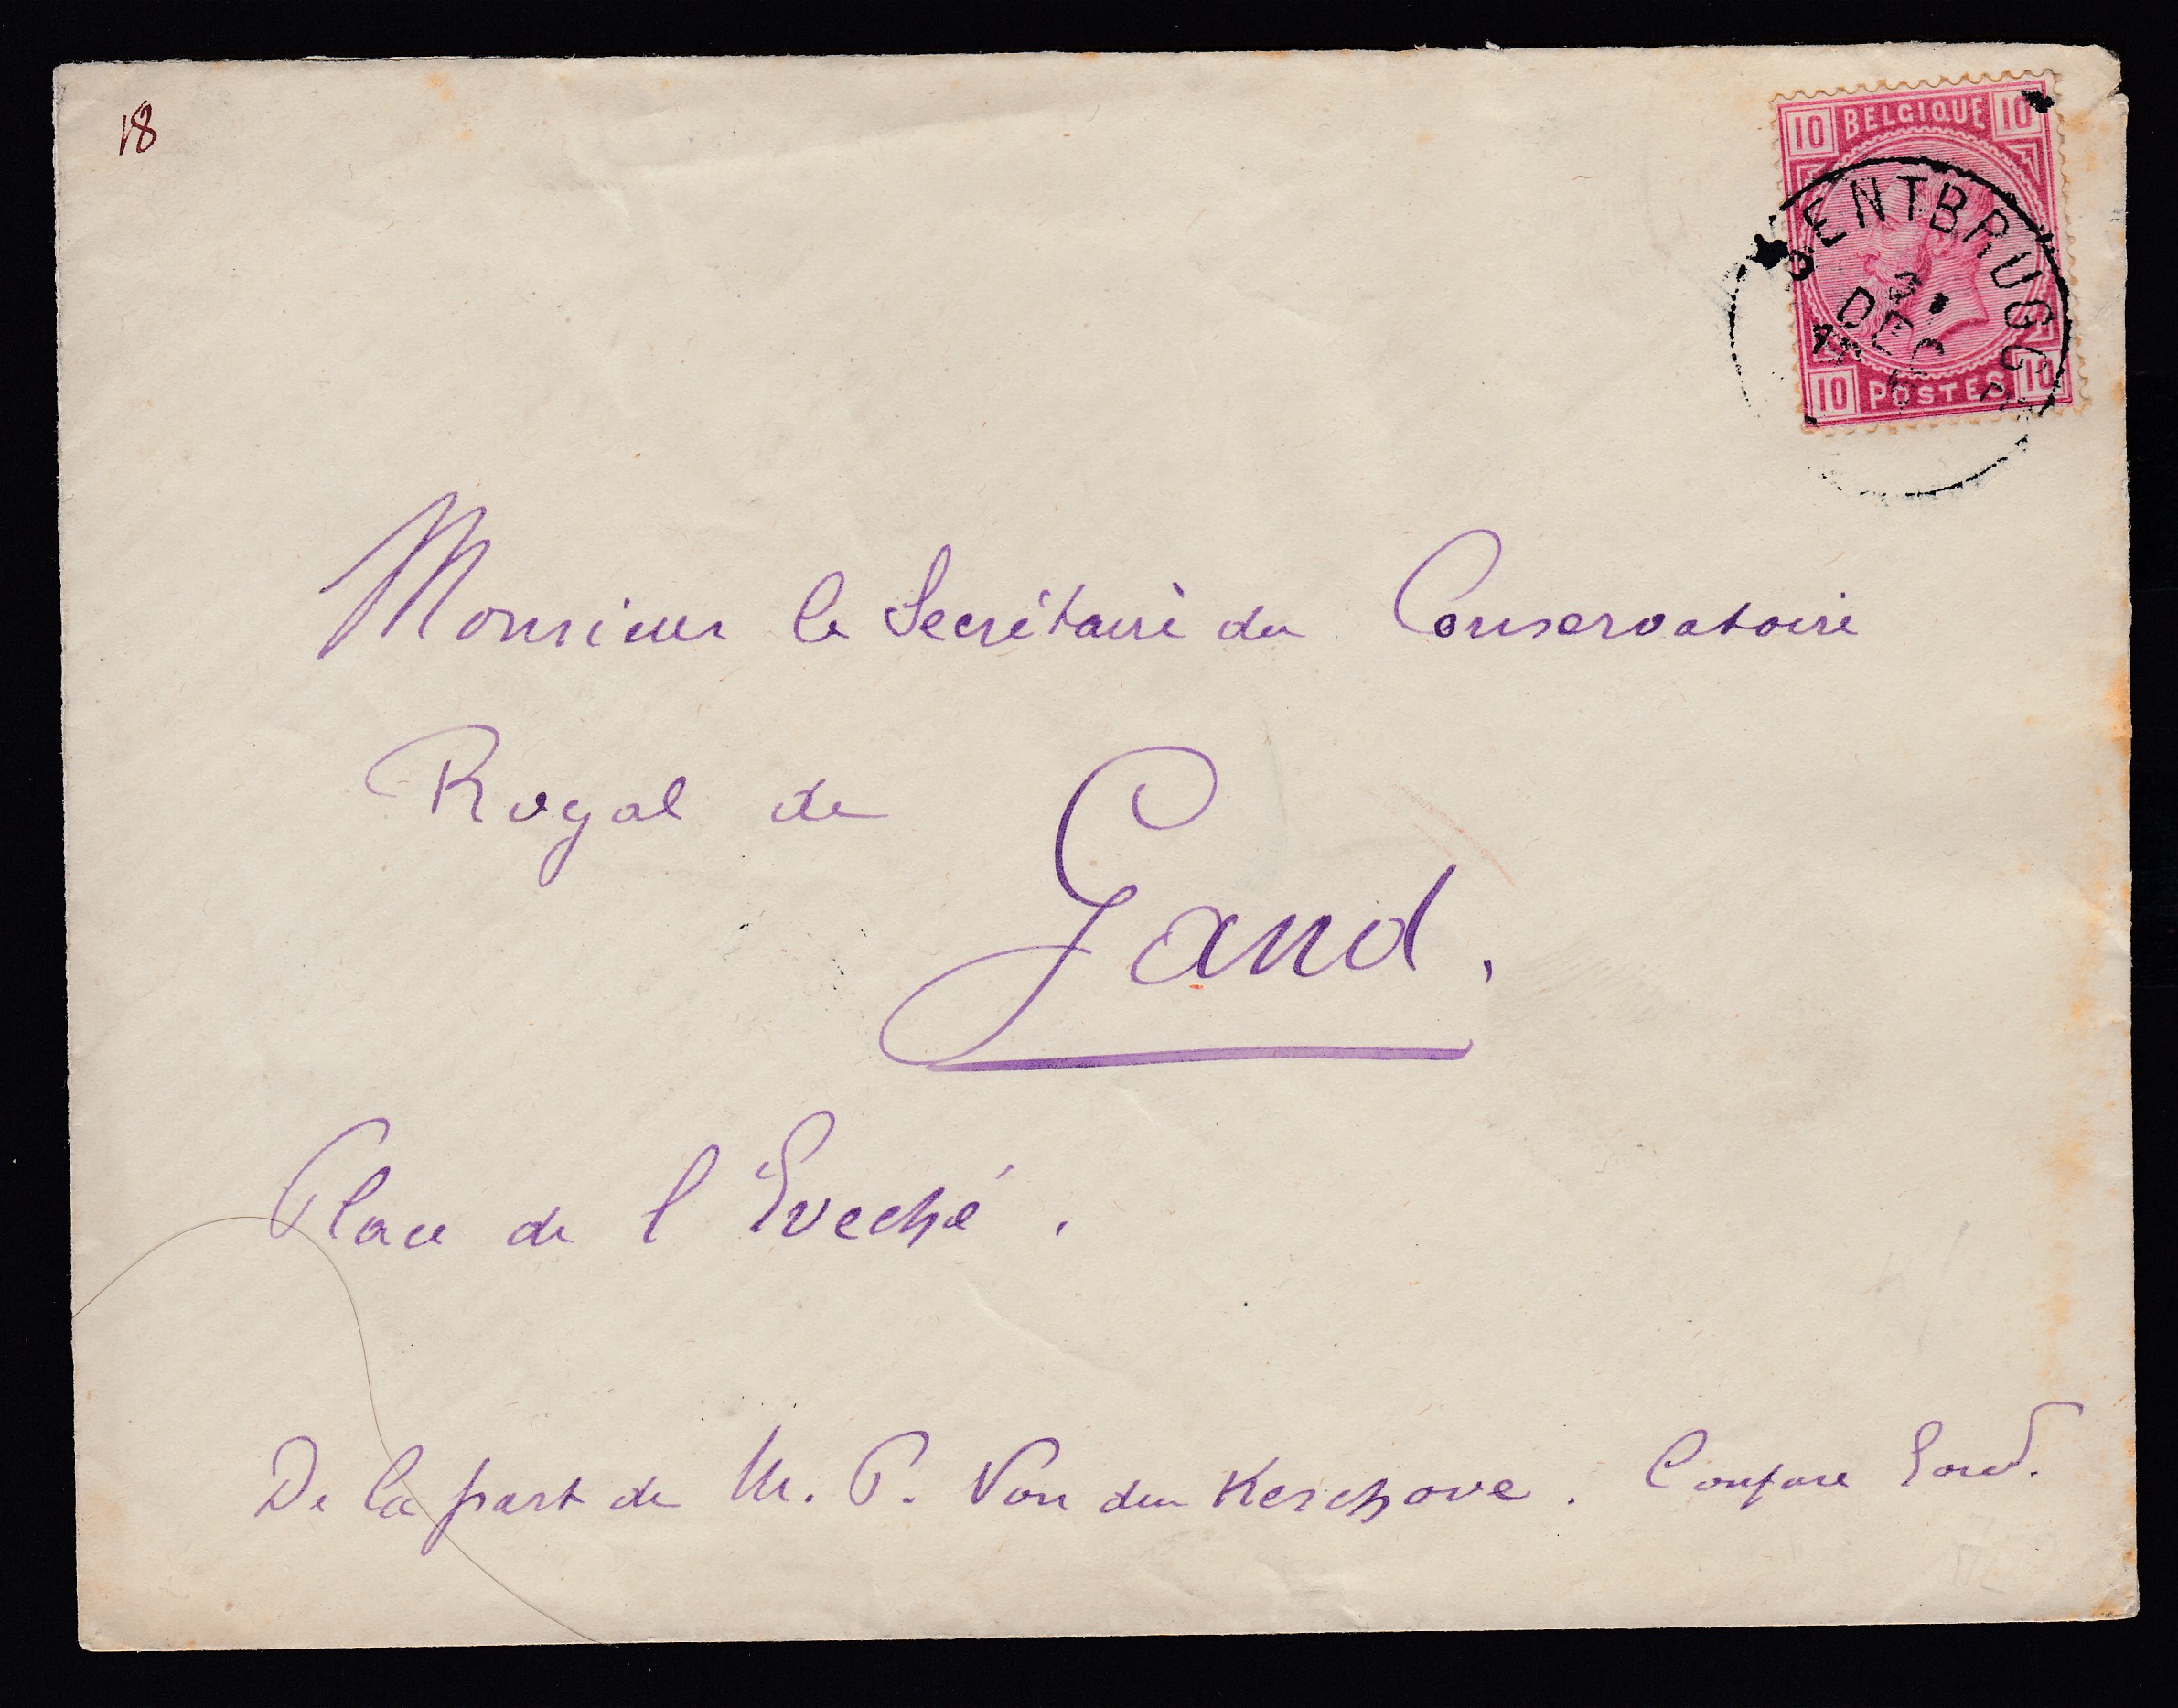 18
10 BELGIQUE 10
GENTBRUGGE
DEC
10 POSTES 10
Monsieur le Secrétaire du Conservatoire
Royal de
Gand.
Place de l'Eveché.
De la part de M. P. Van den Kerchove.